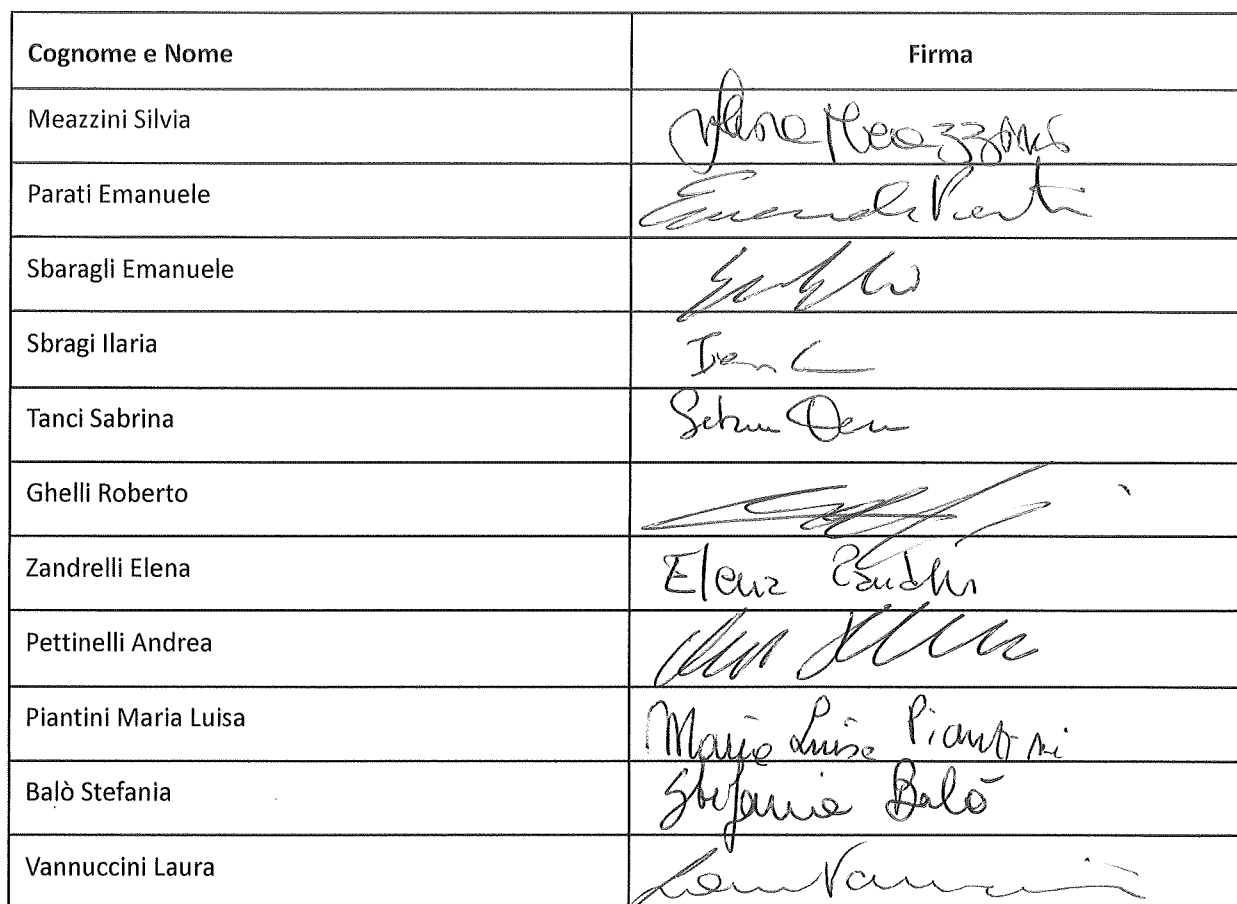 Cognome e Nome Firma
Meazzini Silvia Silvia Meazzini
Parati Emanuele Emanuele Parati
Sbaragli Emanuele
Sbragi Ilaria
Tanci Sabrina
Ghelli Roberto
Zandrelli Elena Elena
Pettinelli Andrea
Piantini Maria Luisa Maria Luisa Piantini
Balò Stefania Stefania Balò
Vannuccini Laura Laura